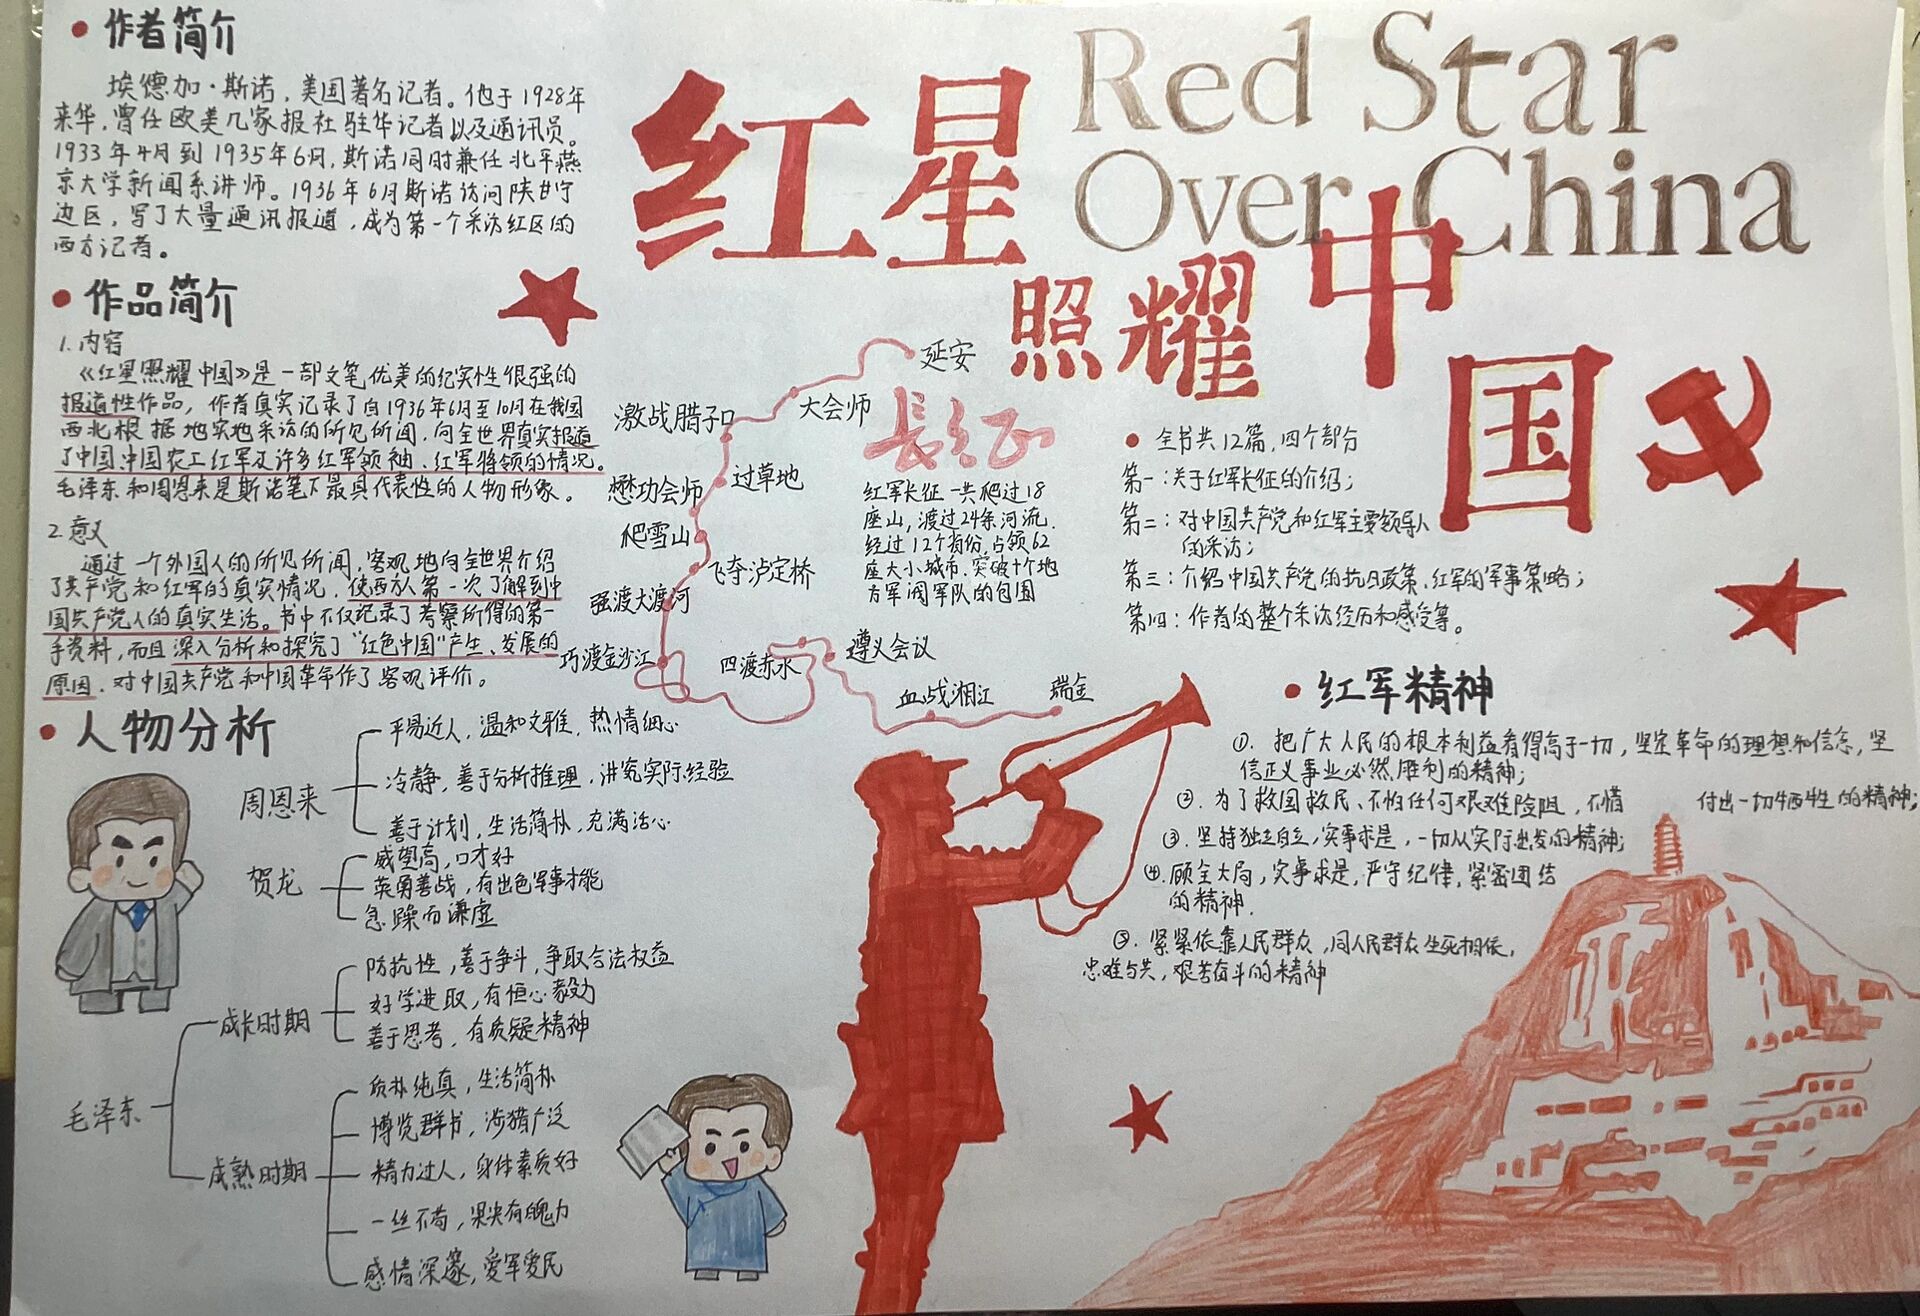 红星照耀中国
Red Star
Over China
作者简介
埃德加·斯诺，美国著名记者。他于1928年
来华，曾任欧美几家报社驻华记者以及通讯员。
1933年4月到1935年6月，斯诺同时兼任北平燕
京大学新闻系讲师。1936年6月斯诺访问陕甘宁
边区，写了大量通讯报道，成为第一个采访红区的
西方记者。
作品简介
1.内容
《红星照耀中国》是一部文笔优美的纪实性很强的
报道性作品，作者真实记录了自1936年6月至10月在我国
西北根据地实地采访的所见所闻，向全世界真实报道
了中国、中国农工红军及许多红军领袖、红军将领的情况。
毛泽东和周恩来是斯诺笔下最具代表性的人物形象。
2.意义
通过一个外国人的所见所闻，客观地向全世界介绍
了共产党和红军的真实情况，使西方人第一次了解到中
国共产党人的真实生活。书中不仅记录了考察所得的第一
手资料，而且深入分析和探究了“红色中国”产生、发展的
原因，对中国共产党和中国革命作了客观评价。
人物分析
周恩来
平易近人，温和文雅，热情细心
冷静，善于分析推理，讲究实际经验
善于计划，生活简朴，充满活心
贺龙
威望高，口才好
英勇善战，有出色军事才能
急躁而谦虚
毛泽东
成长时期
防抗性，善于争斗，争取合法权益
好学进取，有恒心毅力
善于思考，有质疑精神
成熟时期
质朴纯真，生活简朴
博览群书，涉猎广泛
精力过人，身体素质好
一丝不苟，果决有魄力
感情深邃，爱军爱民
延安
大会师
激战腊子口
过草地
懋功会师
爬雪山
飞夺泸定桥
强渡大渡河
巧渡金沙江
四渡赤水
遵义会议
血战湘江
瑞金
长征
红军长征一共爬过18
座山，渡过24条河流，
经过12个省份，占领62
座大小城市，突破十个地
方军阀军队的包围
全书共12篇，四个部分
第一：关于红军长征的介绍；
第二：对中国共产党和红军主要领导人
的采访；
第三：介绍中国共产党的抗日政策、红军的军事策略；
第四：作者的整个采访经历和感受等。
红军精神
①．把广大人民的根本利益看得高于一切，坚定革命的理想和信念，坚
信正义事业必然胜利的精神；
②．为了救国救民、不怕任何艰难险阻，不惜 付出一切牺牲的精神；
③．坚持独立自立，实事求是，一切从实际出发的精神；
④．顾全大局，实事求是，严守纪律，紧密团结
的精神．
⑤．紧紧依靠人民群众，同人民群众生死相依，
患难与共，艰苦奋斗的精神